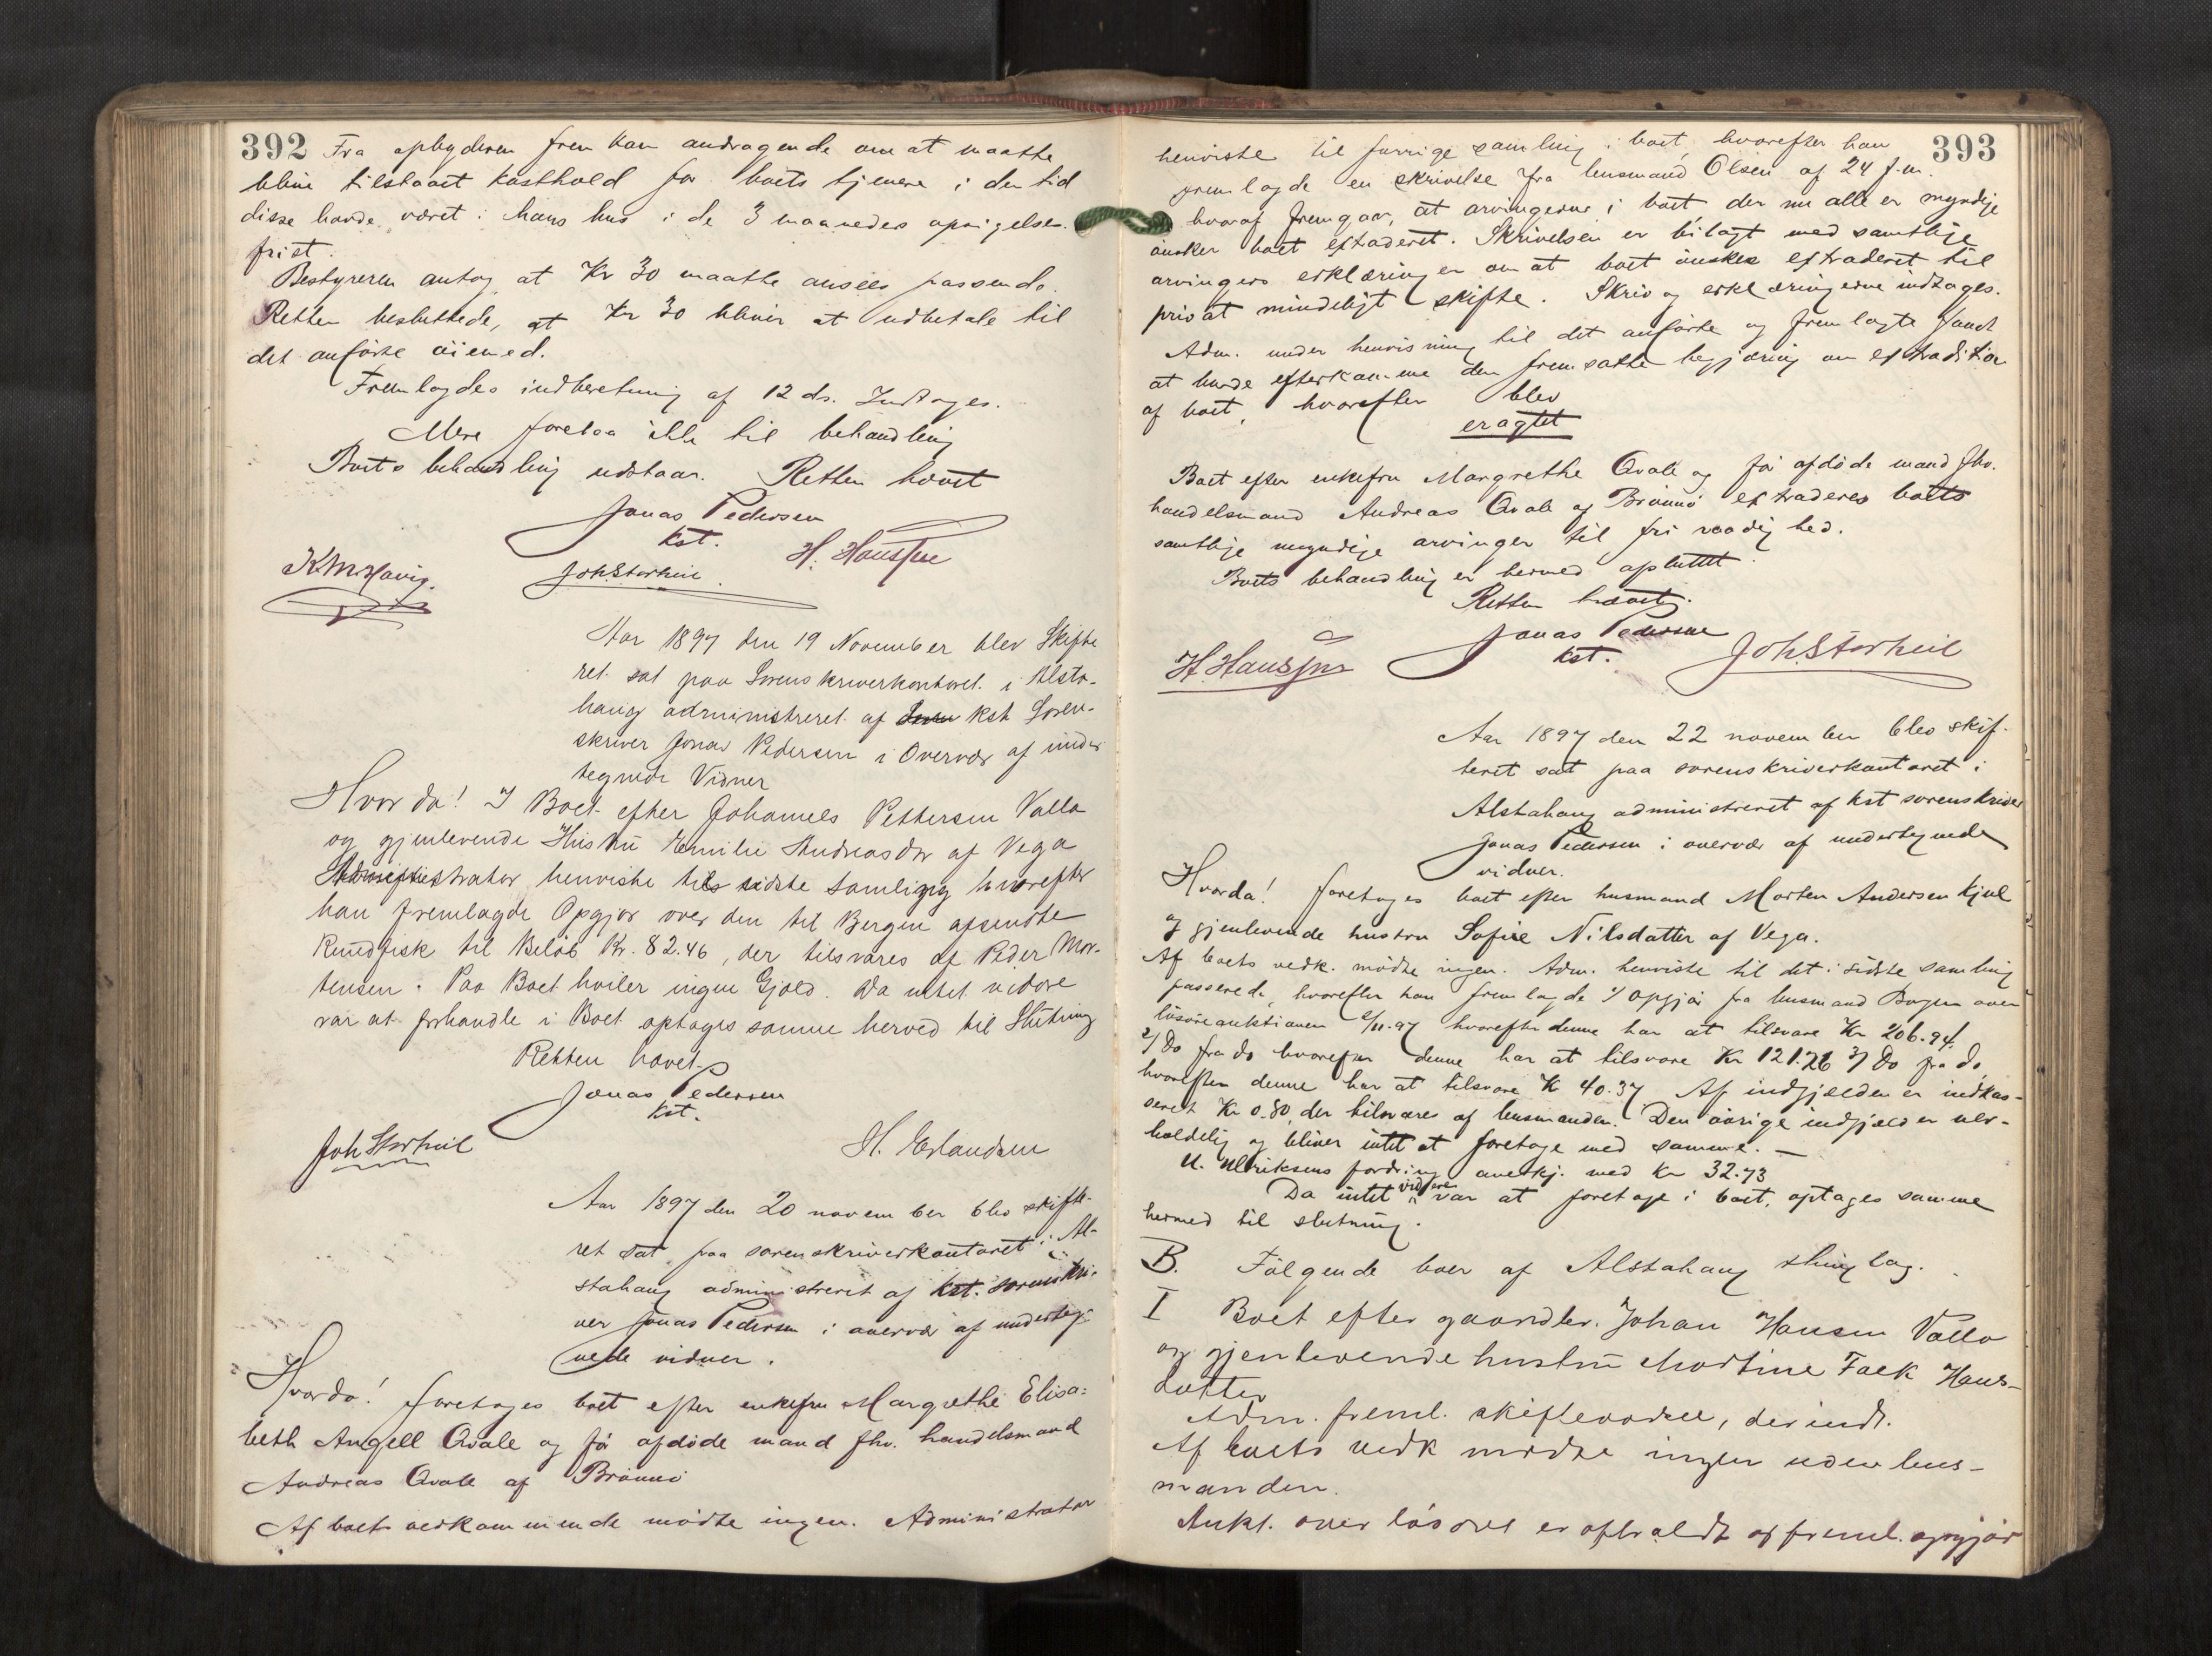 392
Fra opbyderen frem kom andragende om at maatte
blive tilstaaet kosthold for boets tjenere i den tid
disse havde været i hans hus i de 3 maaneders opsigelses-
frist.
Bestyreren antog, at Kr 30 maatte ansees passende.
Retten besluttede, at Kr 30 bliver at udbetale til
det anførte øiemed.
Fremlagdes indberetning af 12 ds. Indtages.
Mere foretoges ikke til behandling
Boets behandling udstaar. Retten hævet
Jonas Pedersen
kst.
H. Hanssen
Joh Storheil
Aar 1897 den 19 November blev Skifte
ret sat paa Sorenskriverkontoret i Alsta-
haug administreret af Soren kst Soren-
skriver Jonas Pedersen i Overvær af under
tegnede Vidner
Hvor da! I Boet efter Johannes Pettersen Valla
og gjenlevende Hustru Emilie Andreasdtr af Vega
Administrator henviste til sidste Samling hvorefter
han fremlagde Opgjør over den til Bergen afsendte
Rundfisk til Beløb Kr. 82.46, der tilsvares af Peder Mor-
tensen. Paa Boet hviler ingen Gjæld. Da intet videre
var at forhandle i Boet optages samme herved til Slutning
Retten hævet.
Jonas Pedersen
kst.
Joh Storheil
H. Erlandsen
Aar 1897 den 20 november blev skifte-
ret sat paa sorenskriverkontoret i Al-
stahaug administreret af kst. sorenskri-
ver Jonas Pedersen i overvær af underteg-
nede vidner.
Hvorda! foretoges boet efter enkefru Margrethe Elisa-
beth Angell Qvale og før afdøde mand fhv. handelsmand
Andreas Qvale af Brønnø
Af boets vedkommende mødte ingen. Administrator
393
henviste til forrige samling i boet, hvorefter han
fremlagde en skrivelse fra lensmand Olsen af 24 f.m.
hvoraf fremgaar, at arvingerne i boet der nu alle er myndige
ønsker boet extraderet. Skrivelsen er bilagt med samtlige
arvingers erklæringer om at boet ønskes extraderet til
privat mindeligt skifte. Skriv og erklæringerne indtages.
Adm. under henvisning til det anførte og fremlagte fandt
at burde efterkomme den fremsatte begjæring om extradition
af boet, hvorefter blev
eragtet
Boet efter enkefru Margrethe Qvale og før afdøde mand fhv.
handelsmand Andreas Qvale af Brønnø extraderes boets
samtlige myndige arvinger til fri raadighed.
Boets behandling er hermed opsluttet.
Retten hævet.
Jonas Pedersen
kst.
H. Hanssen
Joh Storheil
Aar 1897 den 22 november blev skif-
teret sat paa sorenskriverkontoret i
Alstahaug administreret af kst sorenskriver
Jonas Pedersen i overvær af undertegnede
vidner.
Hvorda! foretoges boet efter husmand Morten Andersen Kjul
og gjenlevende hustru Sofie Nilsdatter af Vega.
Af boets vedk. mødte ingen. Adm. henviste til det i sidste samling
passerede, hvorefter han fremlagde 1/ opgjør fra lensmand Bogen over
løsøreauktionen 2/11.97 hvorefter denne har at tilsvare Kr 206.94.
2/ Do fra do hvorefter denne har at tilsvare Kr 121.26 3/ Do fra do,
hvorefter denne har at tilsvare Kr 40.37. Af indgjælden er indkas-
seret Kr 0.80, der tilsvares af lensmanden. Den øvrige indgjæld er uer-
holdelig og bliver intet at foretage med samme. —
U. Ulriksens fordring anerkj. med Kr 32.73
Da intet videre var at foretage i boet, optages samme
hermed til slutning.
B. Følgende boer af Alstahaug thinglag.
I Boet efter gaardbr. Johan Hansen Valla
og gjenlevende hustru Martine Falk Hans-
datter
Adm. freml. skiftevodsel, der indt.
Af boets vedk mødte ingen uden lens-
manden.
Aukt. over løsøret er afholdt og freml. opgjør